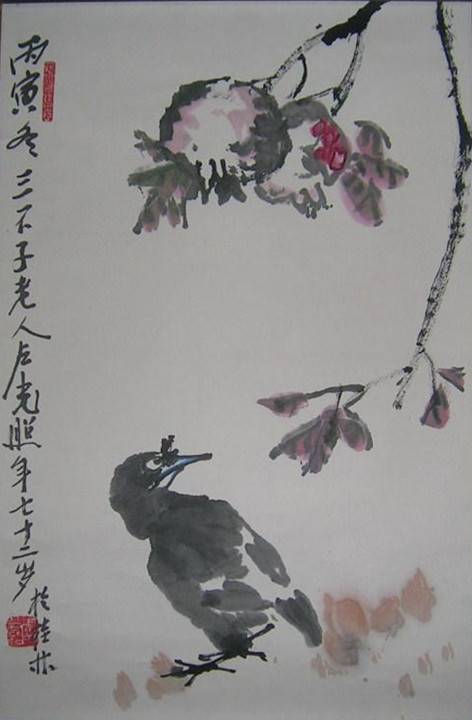 丙寅冬三不子老人卢光照年七十二岁
于桂林